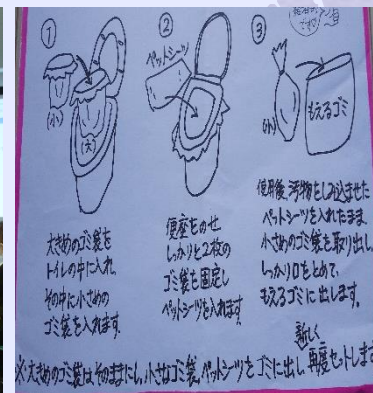 ①
②
③
ペットシーツ
(小)
(大)
(小)
もえるゴミ
大きめのゴミ袋を
トイレの中に入れ、
その中に小さめの
ゴミ袋を入れます。
便座をのせ
しっかりと2枚の
ゴミ袋を固定し
ペットシーツを入れます。
使用後、汚物をしみ込ませた
ペットシーツを入れたまま
小さめのゴミ袋を取り出し、
しっかり口をとめて、
もえるゴミに出します。
※大きめのゴミ袋はそのままにし、小さなゴミ袋、ペットシーツをゴミに出し、新しく再度セットします